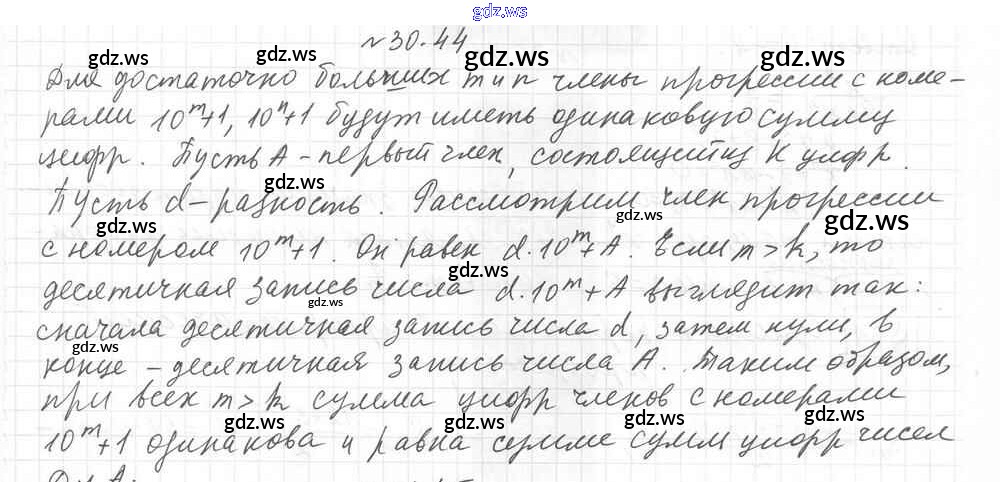 gdz.ws
№30.44
Для достаточно больших m и n члены прогрессии с номе-
рами 10^m+1, 10^n+1 будут иметь одинаковую сумму
цифр. Пусть A - первый член, состоящий из k цифр.
Пусть d - разность. Рассмотрим член прогрессии
с номером 10^m+1. Он равен d·10^m+A. Если m>k, то
десятичная запись числа d·10^m+A выглядит так:
сначала десятичная запись числа d, затем нули, в
конце - десятичная запись числа A. Таким образом,
при всех m>k сумма цифр членов с номерами
10^m+1 одинакова и равна сумме сумм цифр чисел